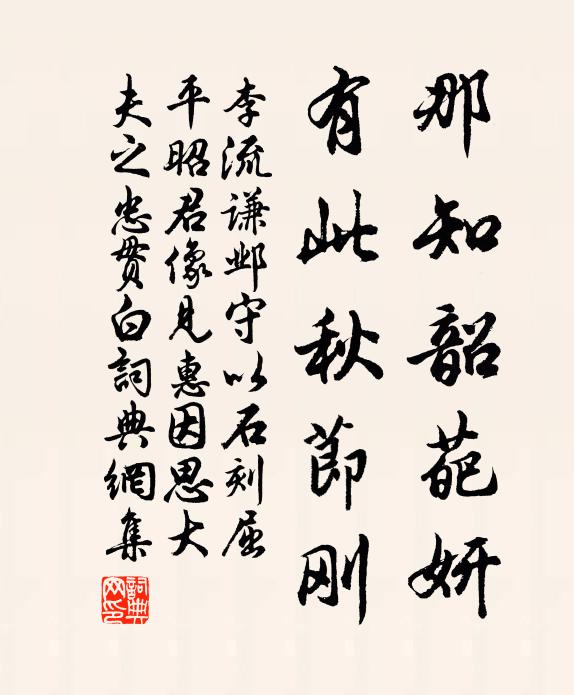 那知韶葩妍
有此秋莭刚
李流谦邺守以石刻屈
平昭君像見惠因思大
夫之忠貫白詞典網集
詞典
网印